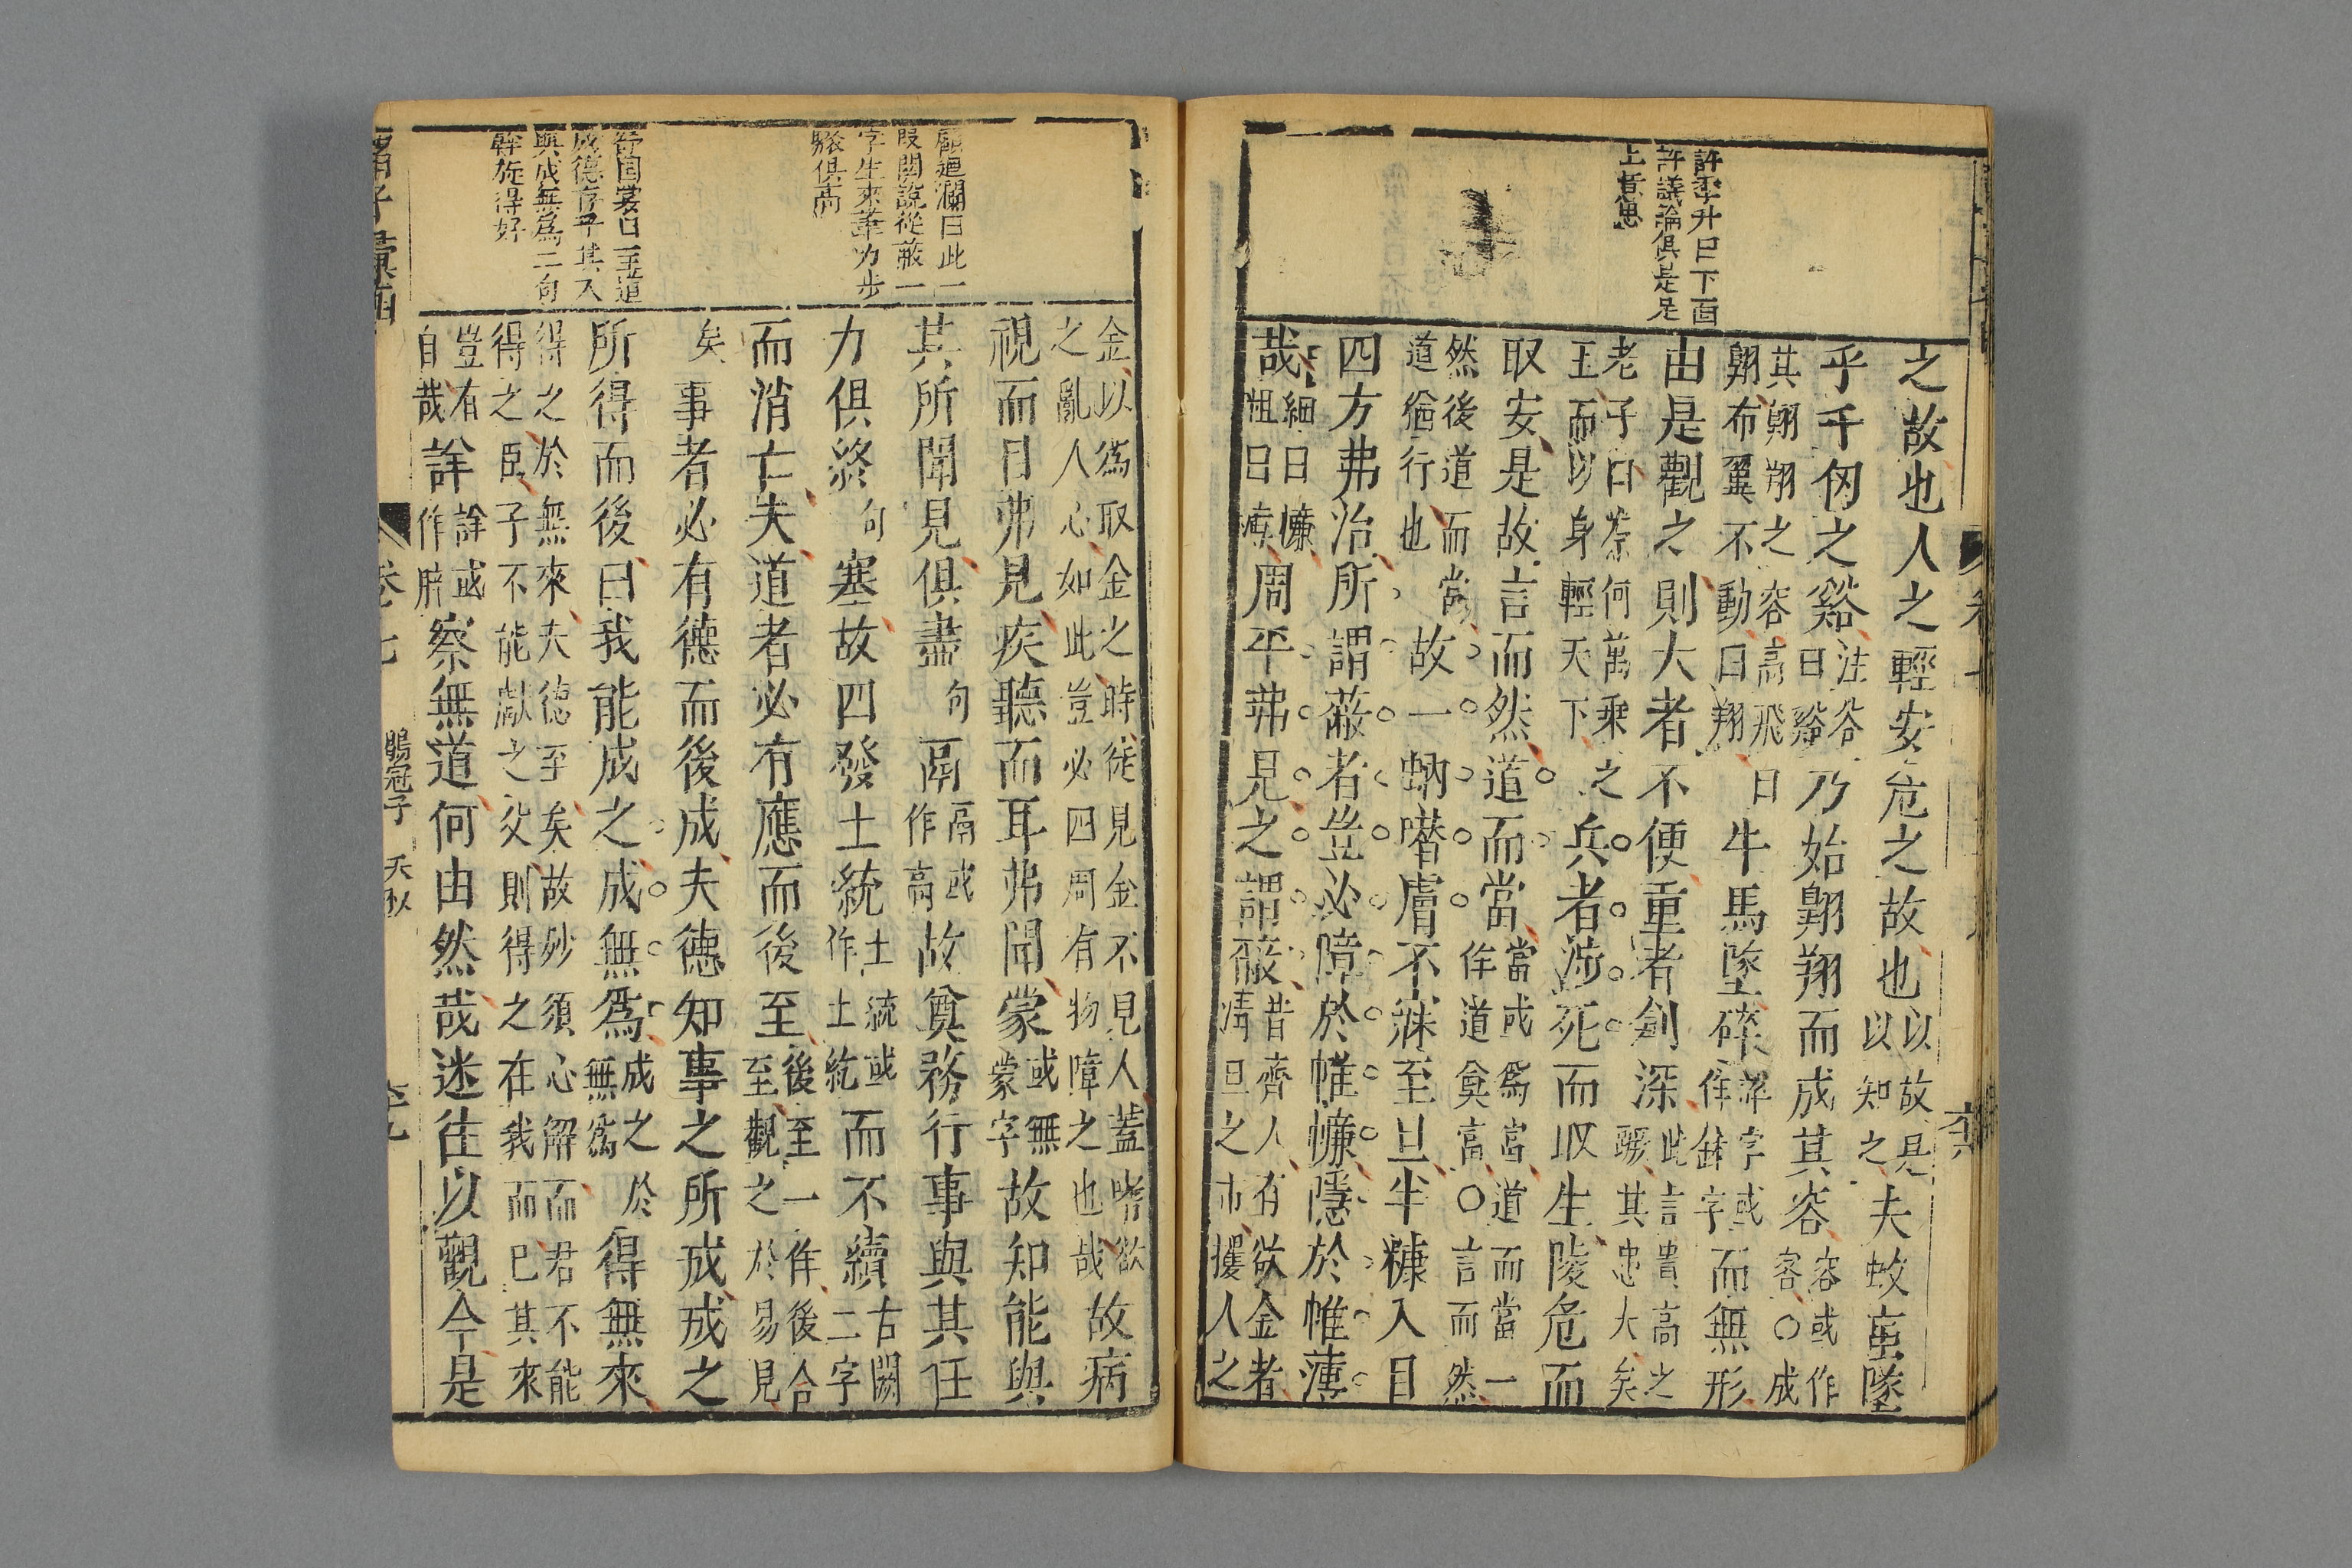 許季升曰下面
許議論俱是足
上意思
之故也人之輕安危之故也以故是以知之夫蚊䖟墜
乎千仞之谿注谷曰谿乃始翺翔而成其容容或作客○成
其翺翔之容高飛曰翺布翼不動曰翔牛馬墜碎碎字或作鉼字而無形
由是觀之則大者不便重者創深此言貴高之賤其患大矣
老子曰柰何萬乘之王而以身輕天下兵者涉死而取生陵危而
取安是故言而然道而當當或爲當道而當一作道奠高○言而然
然後道而當道猶行也故一蚋噆膚不寐至旦半糠入目
四方弗治所謂蔽者豈必障於帷㡘隱於帷薄
哉細曰㡘粗曰㡘周平弗見之謂蔽昔齊人有欲金者清旦之市攫人之
顧廻瀾曰此一
段開説從蔽一
字生來筆力步
驟俱高
舒國裳曰至道
成德存乎其人
與成無爲二句
斡旋得好
金以爲取金之時徒見金不見人蓋嗜欲之亂人心如此豈必四周有物障之也哉故病
視而目弗見疾聽而耳弗聞蒙或無蒙字故知能與
其所聞見俱盡句鬲鬲或作高故奠務行事與其任
力俱終句塞故四發土統土統或作土紇而不續古闕二字
而消亡夫道者必有應而後至後至一作後合至觀之於易見
矣事者必有德而後成夫德知事之所成成之
所得而後曰我能成之成無爲成之於無爲得無來
得之於無來夫德至矣故妙須心解而君不能得之臣子不能獻之父則得之在我而已其來
豈有自哉詳詳或作牂察無道何由然哉迷往以觀今是
諸子彙函 卷七 鶡冠子 天